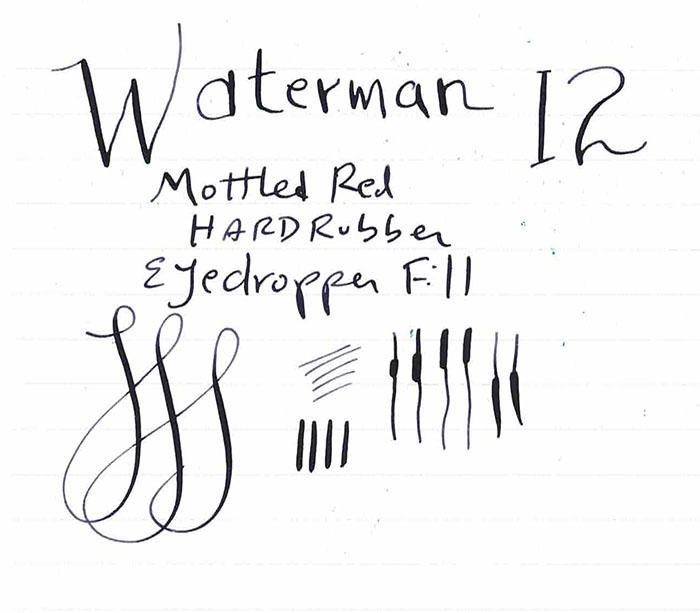 Waterman 12
Mottled Red
HARD Rubber
Eyedropper Fill